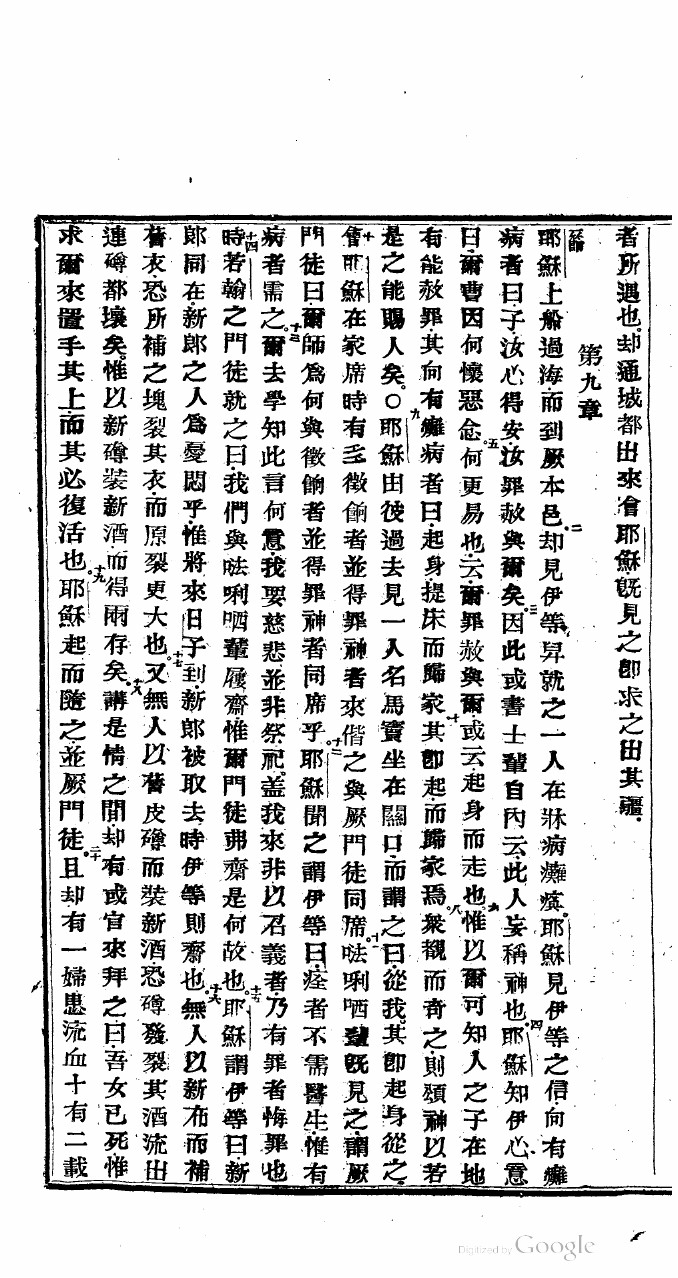 者所遇也却通城都出來會耶穌旣見之卽求之出其疆
第九章
耶穌上船過海而到厥本邑二却見伊等舁就之一人在牀病癱瘓耶穌見伊等之信向有癱
病者曰子汝心得安汝罪赦與爾矣三因此或書士輩自內云此人妄稱神也四耶穌知伊心意
曰爾曹因何懷惡五愈何更易也云爾罪赦與爾或云起身而走也六惟以爾可知人之子在地
有能赦罪其向有癱病者曰起身提床而歸家七其卽起而歸家焉八衆觀而奇之則頌神以若
是之能賜人矣〇九耶穌由彼過去見一人名馬竇坐在關口而謂之曰從我其卽起身從之
十會耶穌在家席時有多徵餉者並得罪神者來偕之與厥門徒同席十一㕰唎哂輩旣見之謂厥
門徒曰爾師爲何與徵餉者並得罪神者同席乎十二耶穌聞之謂伊等曰痊者不需醫生惟有
病者需之十三爾去學知此言何意我要慈悲並非祭祀蓋我來非以召義者乃有罪者悔罪也
十四時若翰之門徒就之曰我們與㕰唎哂輩屢齋惟爾門徒弗齋是何故也十五耶穌謂伊等曰新
郎同在新郎之人爲憂悶乎惟將來日子到新郎被取去時伊等則齋也十六無人以新布而補
舊衣恐所補之塊裂其衣而原裂更大也十七又無人以舊皮罇而裝新酒恐罇發裂其酒流出
連罇都壞矣惟以新罇裝新酒而得兩存矣十八講是情之間却有或官來拜之曰吾女已死惟
求爾來置手其上而其必復活也十九耶穌起而隨之並厥門徒二十且却有一婦患流血十有二載
Digitized by Google